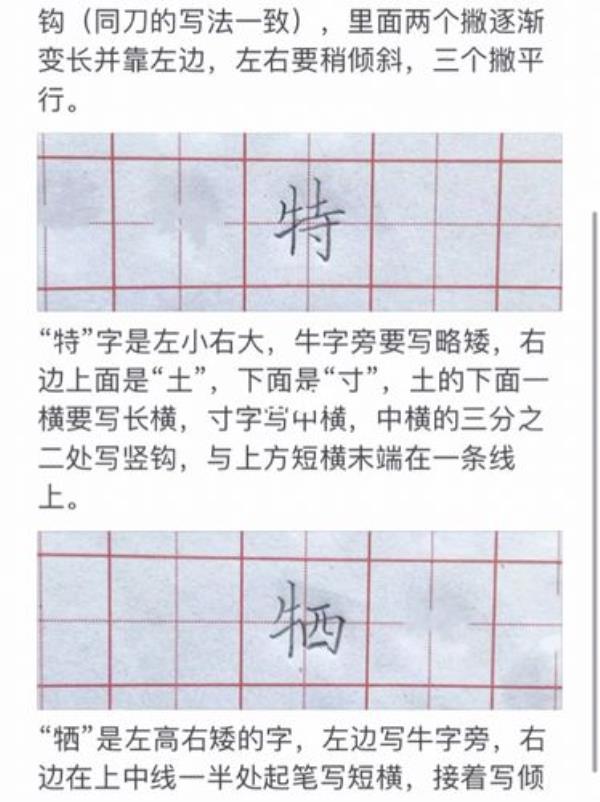 钩（同刀的写法一致），里面两个撇逐渐
变长并靠左边，左右要稍倾斜，三个撇平
行。
特
“特”字是左小右大，牛字旁要写略矮，右
边上面是“土”，下面是“寸”，土的下面一
横要写长横，寸字写中横，中横的三分之
二处写竖钩，与上方短横末端在一条线
上。
牺
“牺”是左高右矮的字，左边写牛字旁，右
边在上中线一半处起笔写短横，接着写倾